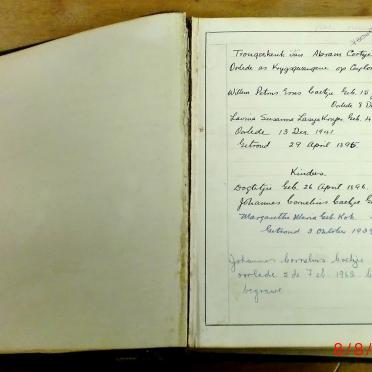 Trougeskenk van Abram Coetje
Oorlede as Krygsgevangene op Ceylon
Willem Petrus Coetje Geb. 15
Oorlede 3 D
Susanna Geb. 14
Oorlede 13 Des 1941
Getroud 29 April 1895
Kinders
Dogtertjie Geb. 26 April 1896
Johannes Cornelius Coetje G
Margaretha Maria Geb. Kok
Getroud 3 Oktober 1939
Johannes Cornelius Coetje
oorlede 2 de Feb. 1968
begrawe
8/8/